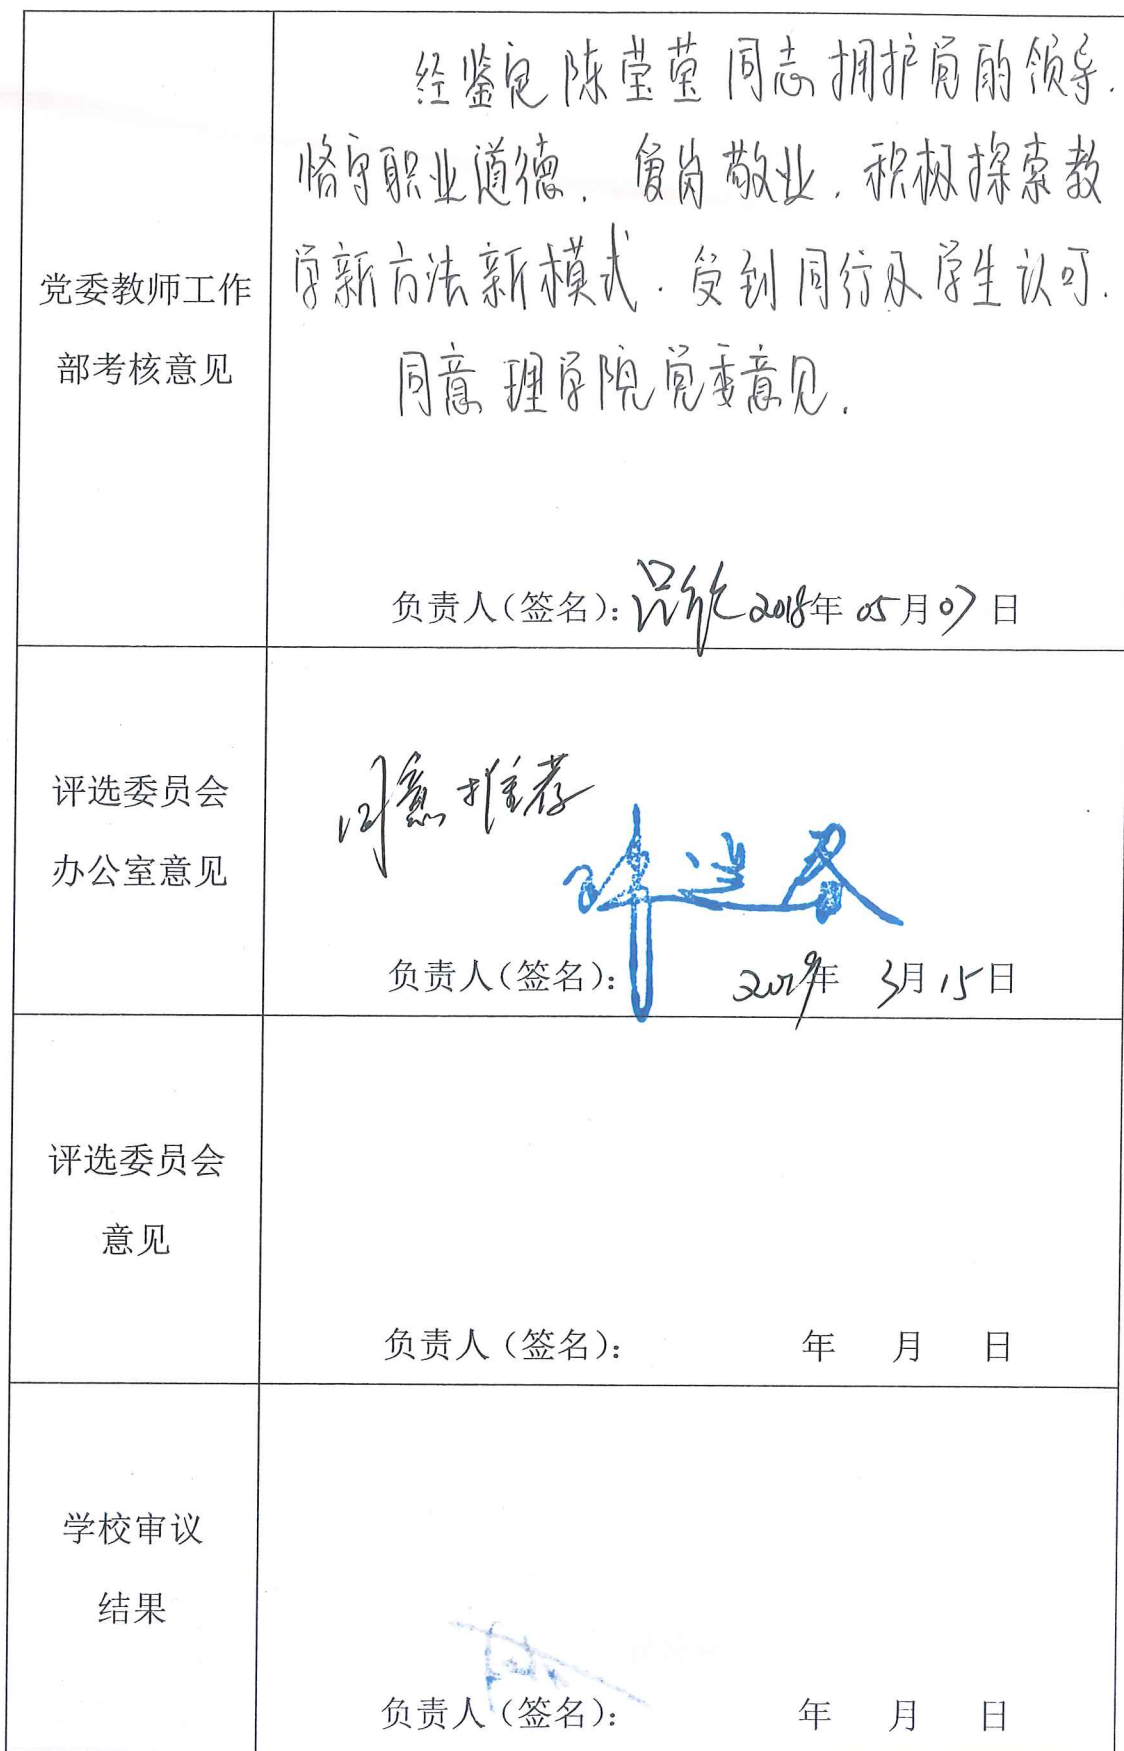 党委教师工作
部考核意见
经鉴定陈莹莹同志拥护党的领导.
恪守职业道德. 爱岗敬业. 积极探索教
学新方法新模式. 受到同行及学生认可.
同意理学院党委意见.
负责人(签名): 2018年 05月07日
评选委员会
办公室意见
同意推荐
负责人(签名): 2019年 3月15日
评选委员会
意见
负责人(签名): 年 月 日
学校审议
结果
负责人(签名): 年 月 日